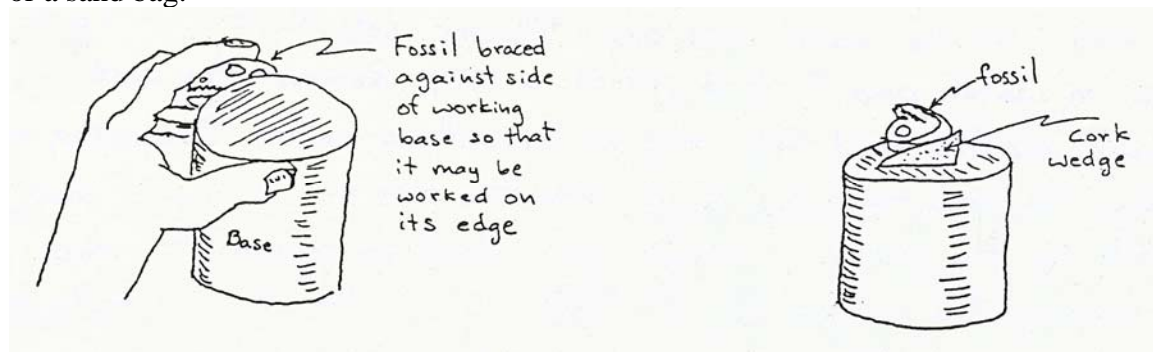 or a sand bag.
Fossil braced
against side
of working
base so that
it may be
worked on
its edge
Base
fossil
cork
wedge